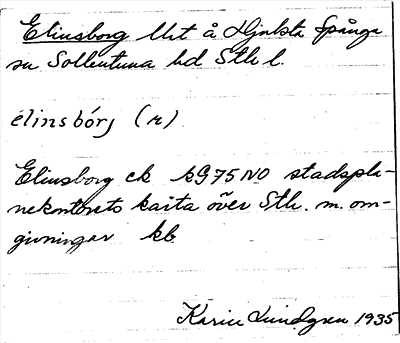 Elinsborg llrt å Hjulsta Spånga
sn Sollentuna hd Sthl l.
élinsbórj (r)
Elinsborg ek kG75NO stadspla-
nekontorets karta över Sth. m. om-
givningar kb
Karin Lundgren 1935